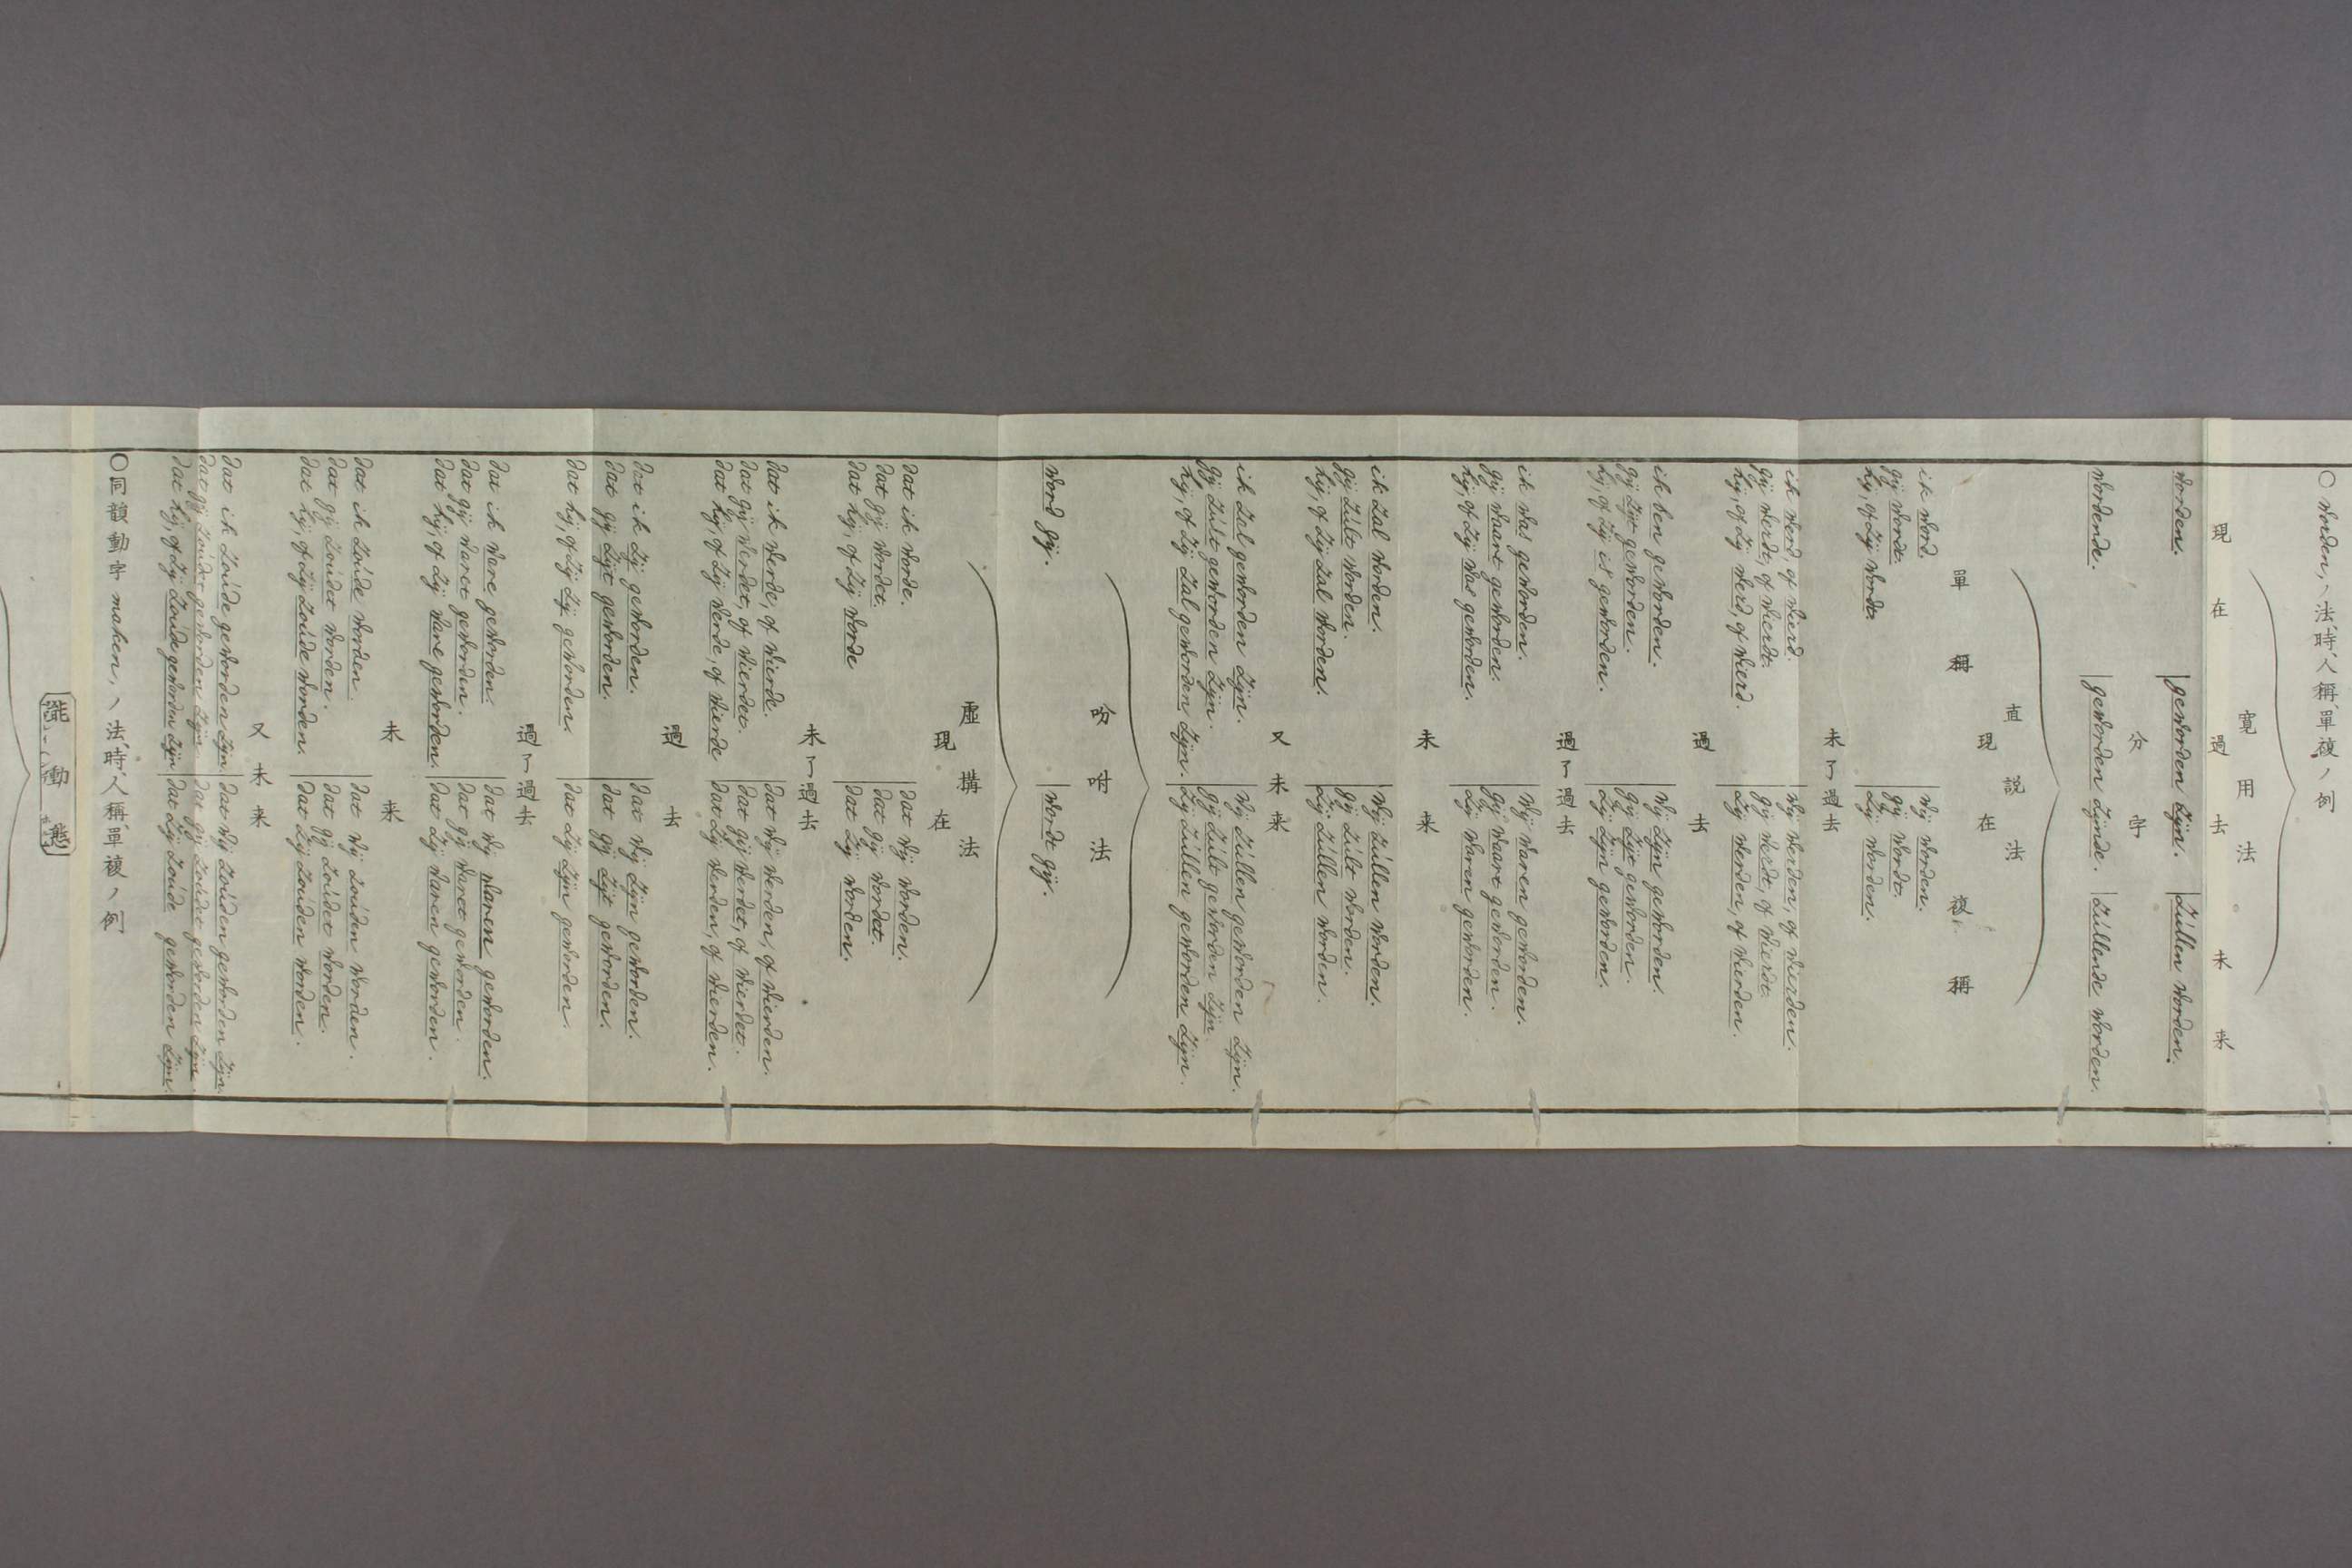 〇 worden, ノ法、時、人稱、單複ノ例
寛用法
現在 過去 未来
worden. geworden zijn. zúllen worden.
分字
wordende. geworden zijnde. zúllende worden.
直説法
現在
單稱 複稱
ik word. wij worden.
gij wordt. gij wordt.
hij, of zij wordt. zij worden.
未了過去
ik werd, of wierd. wij werden, of wierden.
gij werdt, of wierdt. gij werdt, of wierdt.
hij, of zij werd, of wierd. zij werden, of wierden.
過去
ik ben geworden. wij zijn geworden.
gij zijt geworden. gij zijt geworden.
hij, of zij is geworden. zij zijn geworden.
過了過去
ik was geworden. wij waren geworden.
gij waart geworden. gij waart geworden.
hij, of zij was geworden. zij waren geworden.
未来
ik zal worden. wij zúllen worden.
gij zúlt worden. gij zúlt worden.
hij, of zij zal worden. zij zúllen worden.
又未来
ik zal geworden zijn. wij zúllen geworden zijn.
gij zúlt geworden zijn. gij zúlt geworden zijn.
hij, of zij zal geworden zijn. zij zúllen geworden zijn.
吩咐法
word gij. wordt gij.
虚搆法
現在
dat ik worde. dat wij worden.
dat gij wordet. dat gij wordet.
dat hij, of zij worde dat zij worden.
未了過去
dat ik werde, of wierde. dat wij werden, of wierden.
dat gij werdet, of wierdet. dat gij werdet, of wierdet.
dat hij, of zij werde, of wierde dat zij werden, of wierden.
過去
dat ik zij geworden. dat wij zijn geworden.
dat gij zijt geworden. dat gij zijt geworden.
dat hij, of zij zij geworden. dat zij zijn geworden.
過了過去
dat ik ware geworden. dat wij waren geworden.
dat gij waret geworden. dat gij waret geworden.
dat hij, of zij ware geworden. dat zij waren geworden.
未来
dat ik zoúde worden. dat wij zoúden worden.
dat gij zoúdet worden. dat gij zoúdet worden.
dat hij, of zij zoúde worden. dat zij zoúden worden.
又未来
dat ik zoúde geworden zijn. dat wij zoúden geworden zijn.
dat gij zoúdet geworden zijn dat gij zoúdet geworden zijn.
dat hij, of zij zoúde geworden zijn dat zij zoúde geworden zijn.
〇同韻動字 maken, ノ法、時、人稱、單複ノ例
能動態